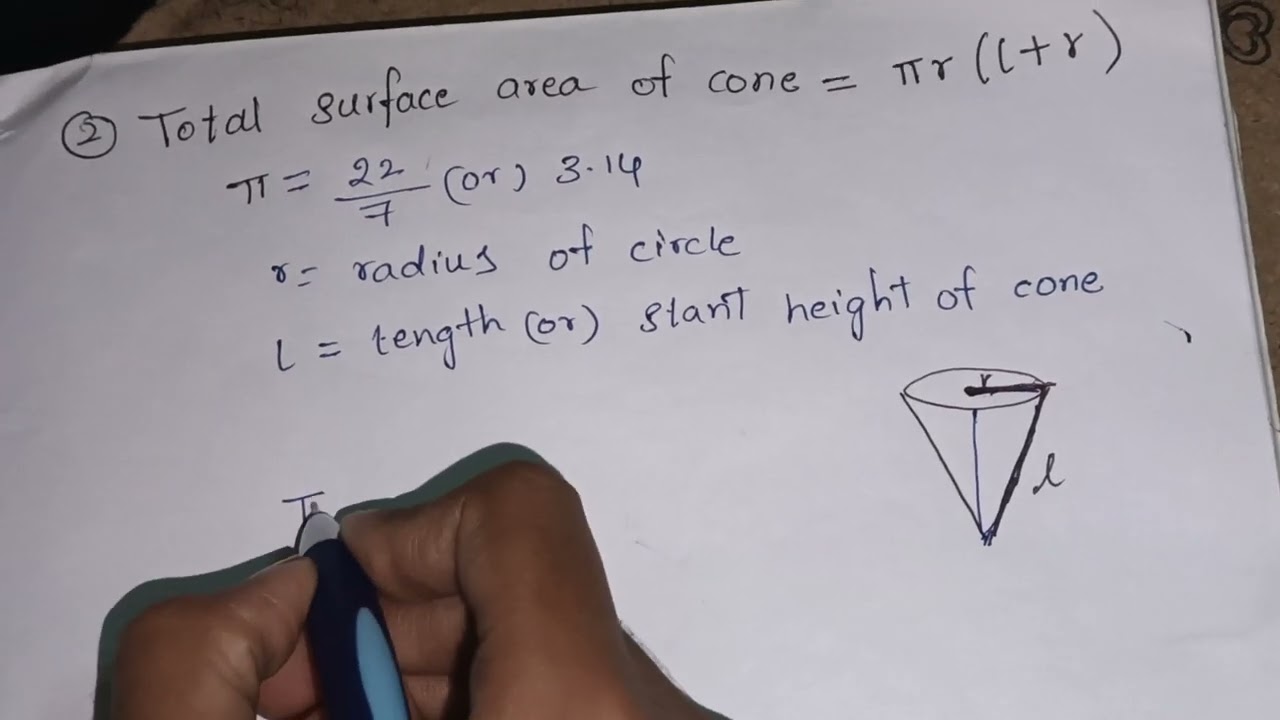 ② Total surface area of cone = πr(l+r)
π = 22/7 (or) 3.14
r = radius of circle
l = length (or) slant height of cone
r
l
T